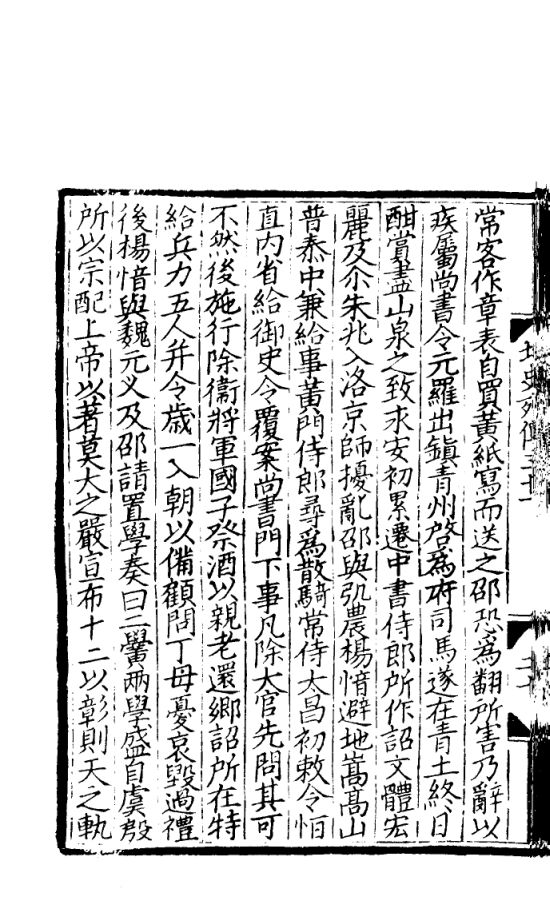 常客作章表自買黃紙寫而送之邵恐爲翻所害乃辭以
疾屬尚書令元羅出鎮青州啓爲府司馬遂在青土終日
酣賞盡山泉之致永安初累遷中書侍郎所作詔文體宏
麗及尒朱兆入洛京師擾亂邵與弘農楊愔避地嵩髙山
普泰中兼給事黃門侍郎尋爲散騎常侍太昌初敕令恒
直内省給御史令覆案尚書門下事凡除大官先問其可
不然後施行除衞將軍國子祭酒以親老還鄉詔所在特
給兵力五人并令歲一入朝以備顧問丁母憂哀毀過禮
後楊愔與魏元乂及邵請置學奏曰二黌兩學盛自虞殷
所以宗配上帝以著莫大之嚴宣布十二以彰則天之軌